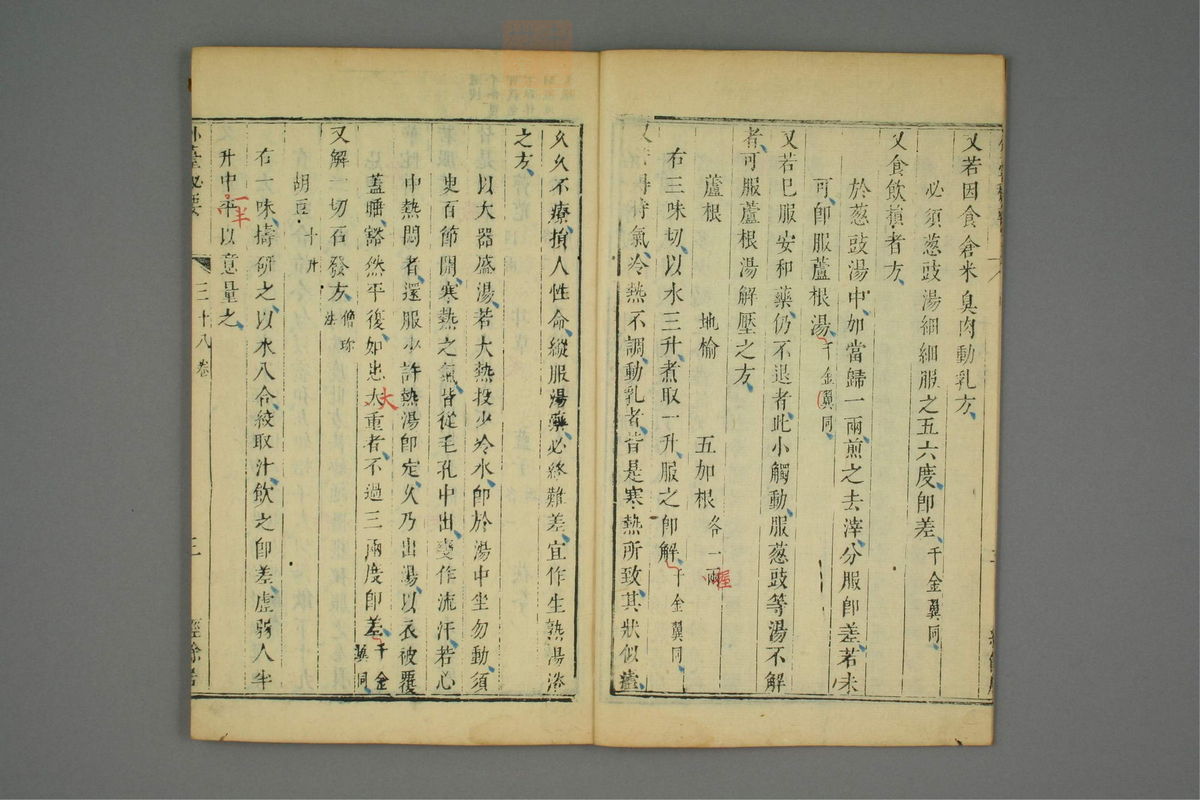 又若因食倉米臭肉動乳方
必須葱豉湯細細服之五六度卽差千金翼同
又食飲
者方
於葱豉湯中加當歸一兩煎之去滓分服卽差若未
可卽服蘆根湯千金翼同
又若已服安和藥仍不退者此小觸動服葱豉等湯不解
者可服蘆根湯解壓之方
蘆根 地愉 五加根各一兩
握
右三味切以水三升煮取一升服之卽解千金翼同
氣冷熱不調動乳者皆是寒熱所致其狀似瘧
久久不療損人性命縱服湯藥必終難差宜作生熟湯浴
之方
以大器盛湯若大熱投少冷水卽於湯中坐勿動須
臾百節開寒熱之氣皆從毛孔中出變作流汗若心
中熱悶者還服少許熱湯卽定久乃出湯以衣被覆
蓋睡豁然平復如患大重者不過三兩度卽差千金
翼同
大
又解一切石發方僧珎
法
胡豆十升
右一味擣研之以水八合絞取汁飲之卽差虛弱人半
升中平以意量之
一半
臺秘要 三十八卷 三 經餘居